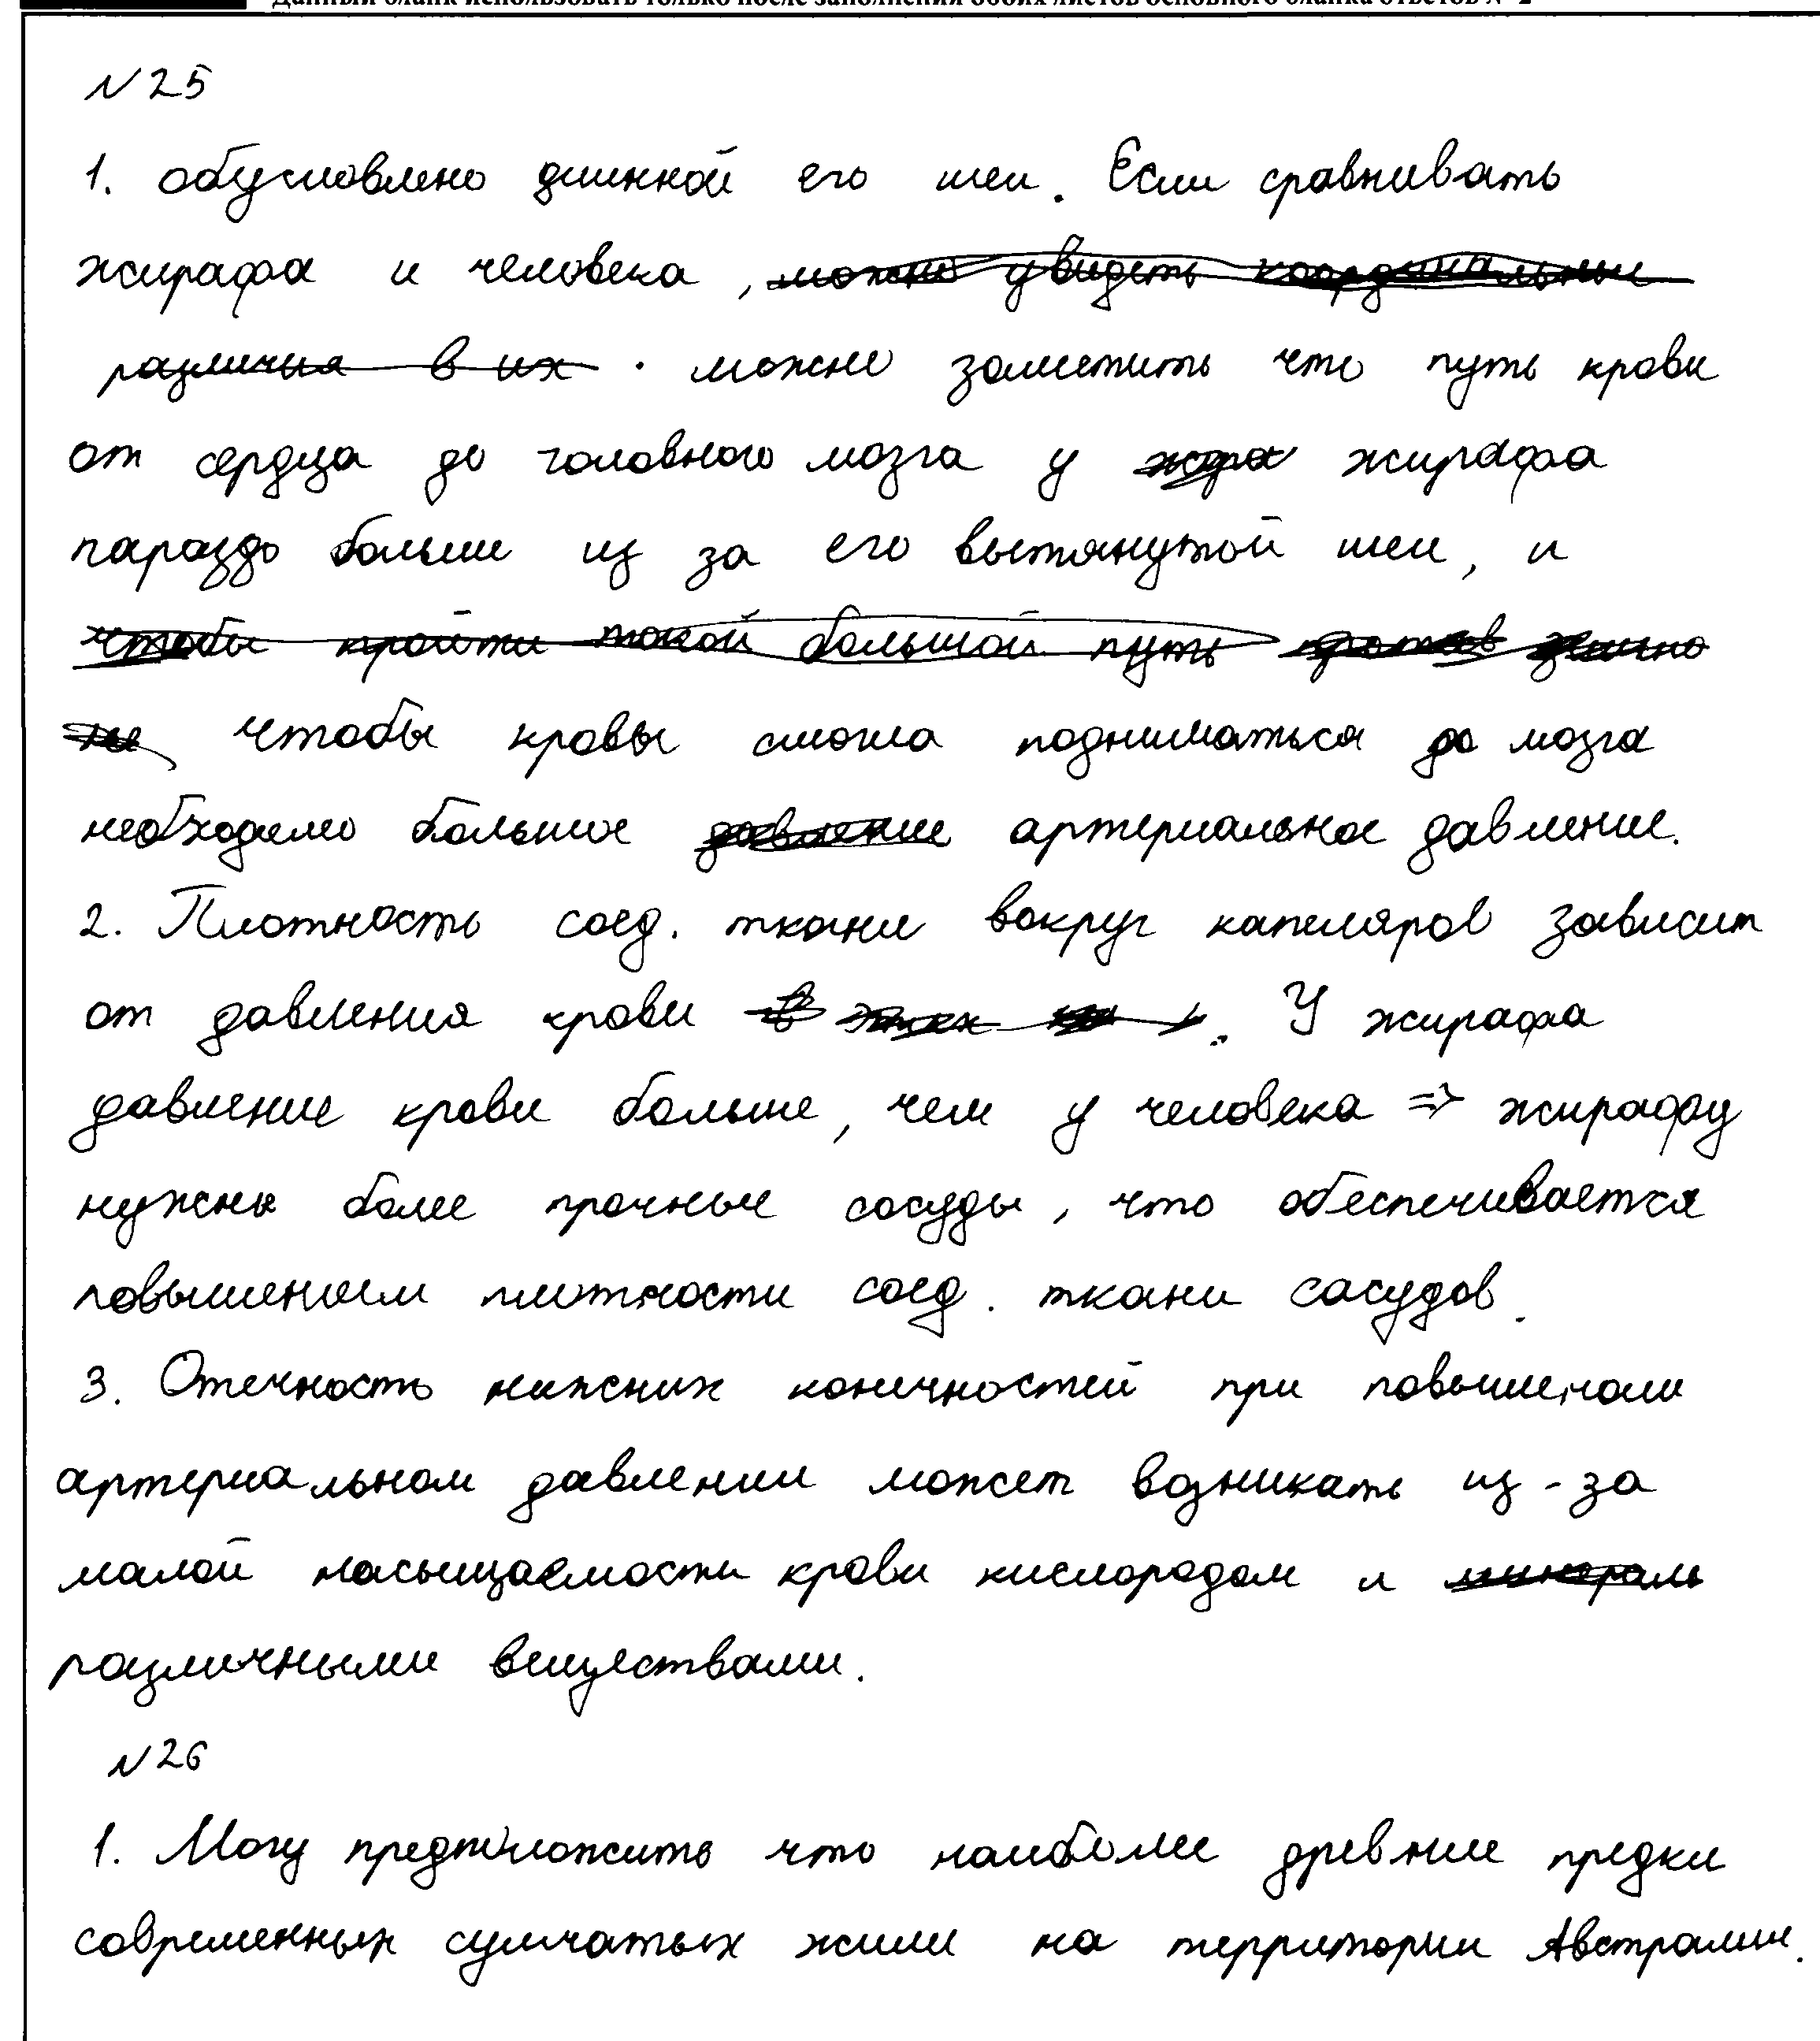 Данный бланк использовать только после заполнения обоих листов основного бланка ответов № 2
№ 25
1. обусловлено длинной его шеи. Если сравнивать
жирафа и человека, можно увидеть коардинальные
различия в их. можно заметить что путь крови
от сердца до головного мозга у жирафа
гараздо больше из за его вытянутой шеи, и
чтобы пройти такой большой путь
чтобы кровы смогла подниматься до мозга
необходимо большое давление артериальное давление.
2. Плотность соед. ткани вокруг капеляров зависит
от давления крови в этих . У жирафа
давление крови больше, чем у человека => жирафу
нужны более прочные сосуды, что обеспечивается
повышением плотности соед. ткани сасудов.
3. Отечность нижних конечностей при повышеном
артериальном давлении может возникать из-за
малой насыщаемости крови кислородом и минераль
различными веществами.
№ 26
1. Могу предположить что наиболее древние предки
современных сумчатых жили на территории Австралии.